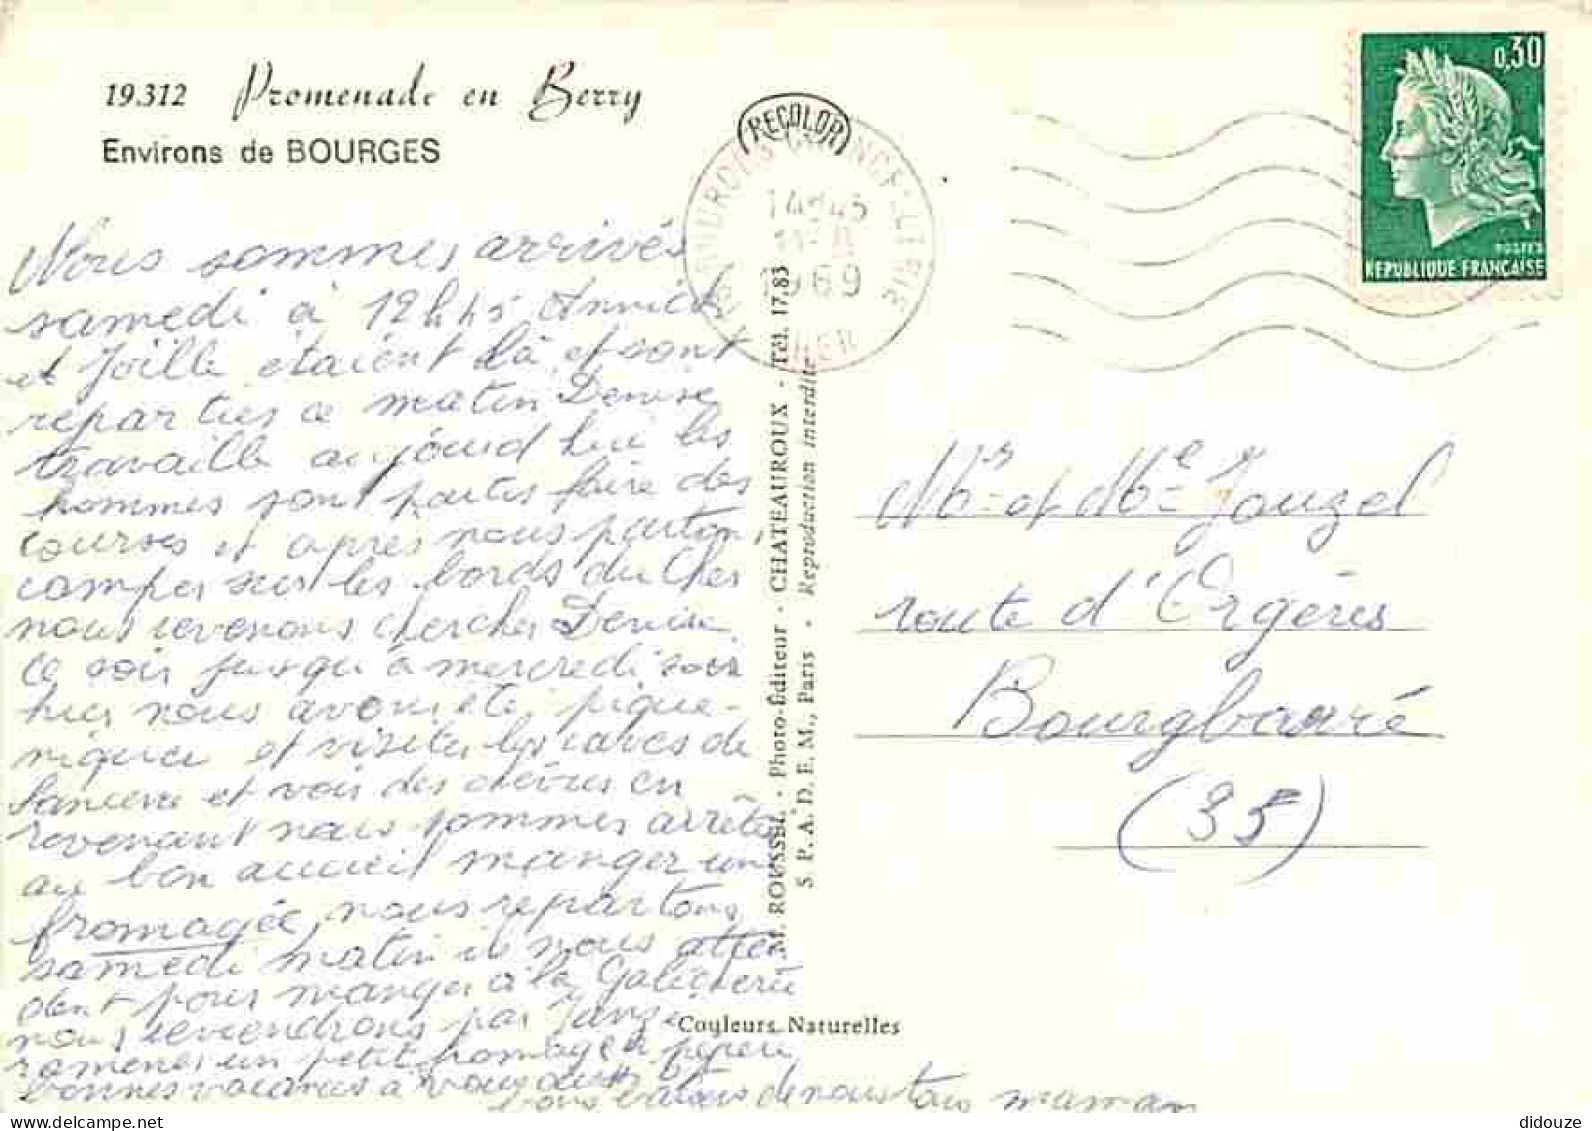 19.312 Promenade en Berry
Environs de BOURGES
RECOLOR
1969
0,30
POSTES
REPUBLIQUE FRANÇAISE
Nous sommes arrivés
samedi à 12h45 Annick
et Joëlle étaient là et sont
reparties ce matin Denise
travaille aujourd hui les
hommes sont partis faire des
courses et apres nous partons
camper sur les bords du Cher
nous revenons chercher Denise
ce soir jusqu à mercredi soir
hier nous avons été pique-
niquer et visiter les caves de
Sancerre et voir des chèvres en
revenant nous sommes arrêtés
au bon accueil manger un
fromagée nous repartons
samedi matin ils nous atten
dent pour manger à la Galicherie
nous reviendrons par Janzé
ramener un petit fromage à pépère
bonnes vacances à vous
bons baisers de nous tous maman
M. ROUSSEL - Photo-Éditeur - CHATEAUROUX - Tél. 17.83
S. P. A. D. E. M., Paris - Reproduction interdite
Couleurs Naturelles
Mr et Me Jouzel
route d'Orgères
Bourgbarré
(35)
didouze